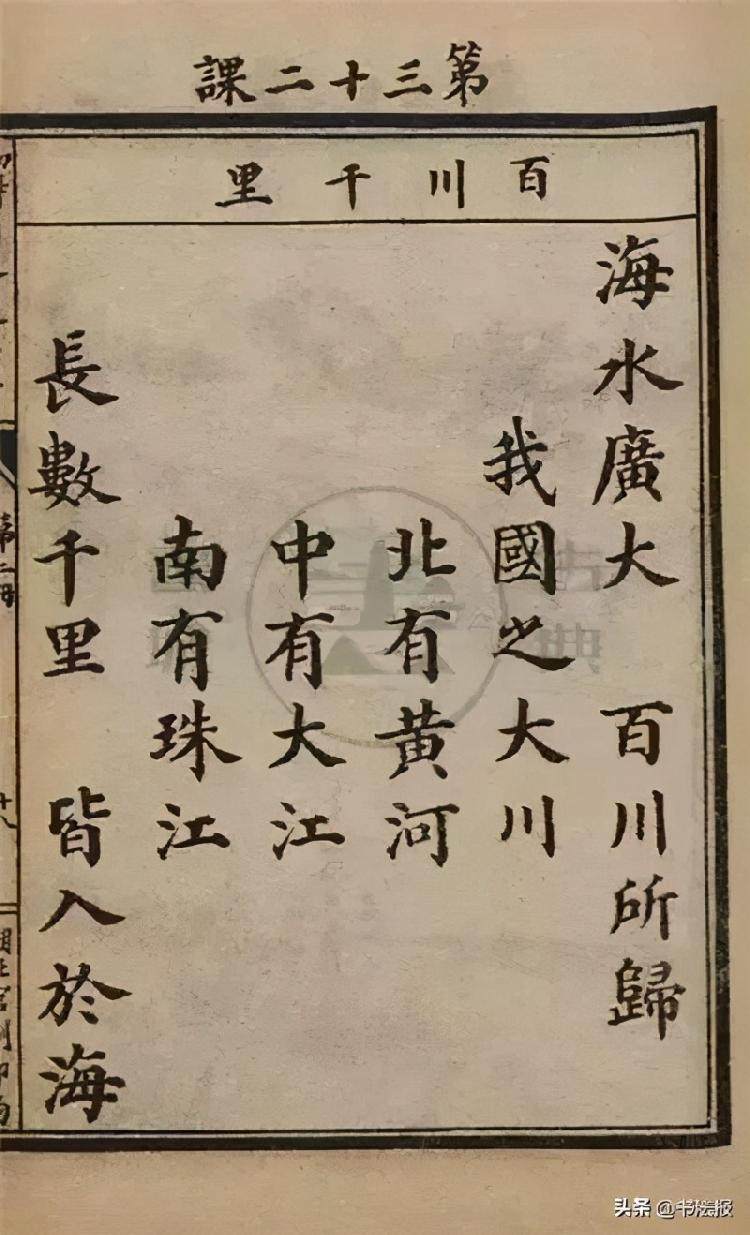 第三十二課
百川千里
海水廣大 百川所歸
我國之大川
北有黃河
中有大江
南有珠江
長數千里 皆入於海
第二冊
十八
头条 @书法报